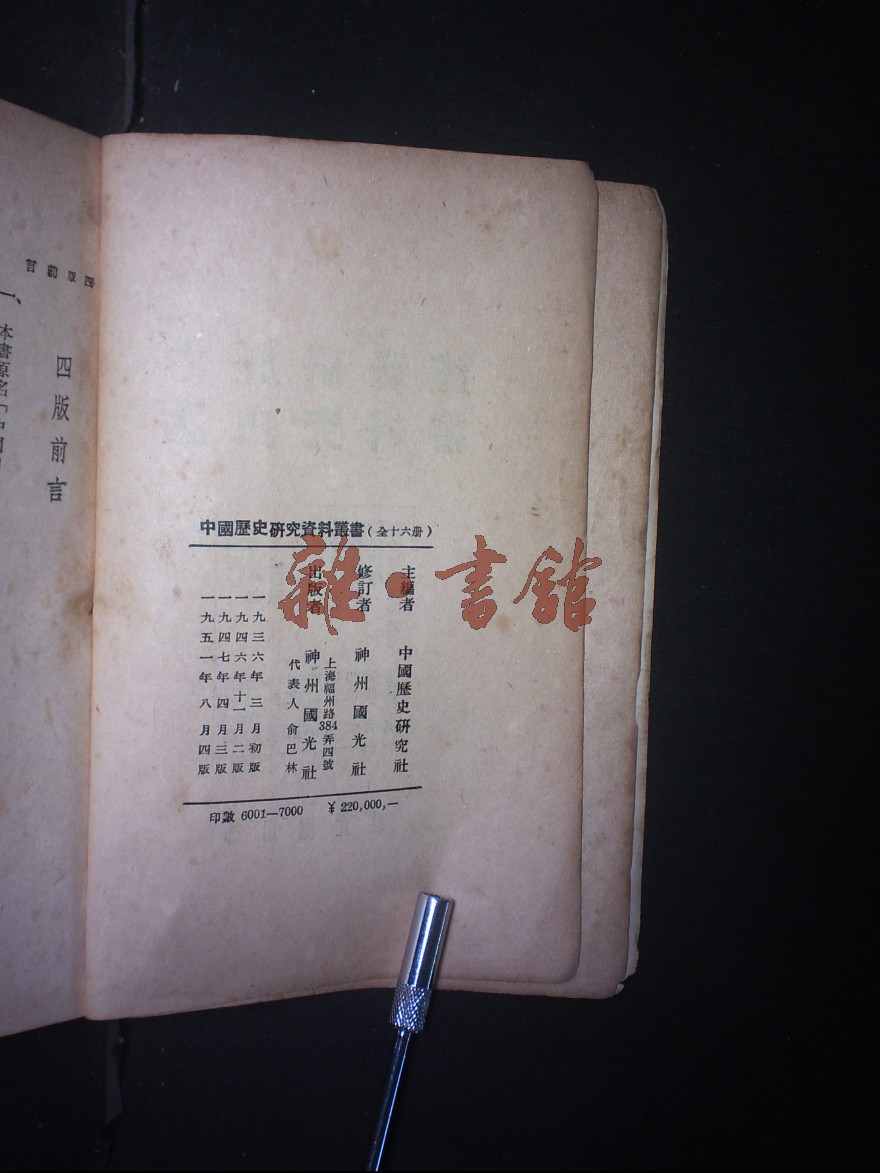 中國歷史研究資料叢書(全十六册)
主編者 中國歷史研究社
修訂者 神州國光社
出版者 神州國光社
上海福州路384弄四號
代表人俞巴林
一九三六年三月初版
一九四六年十一月二版
一九四七年四月三版
一九五一年八月四版
印數 6001—7000 ¥220,000,—
四版前言
四版前言
一、本書原名「中國
雜·書館